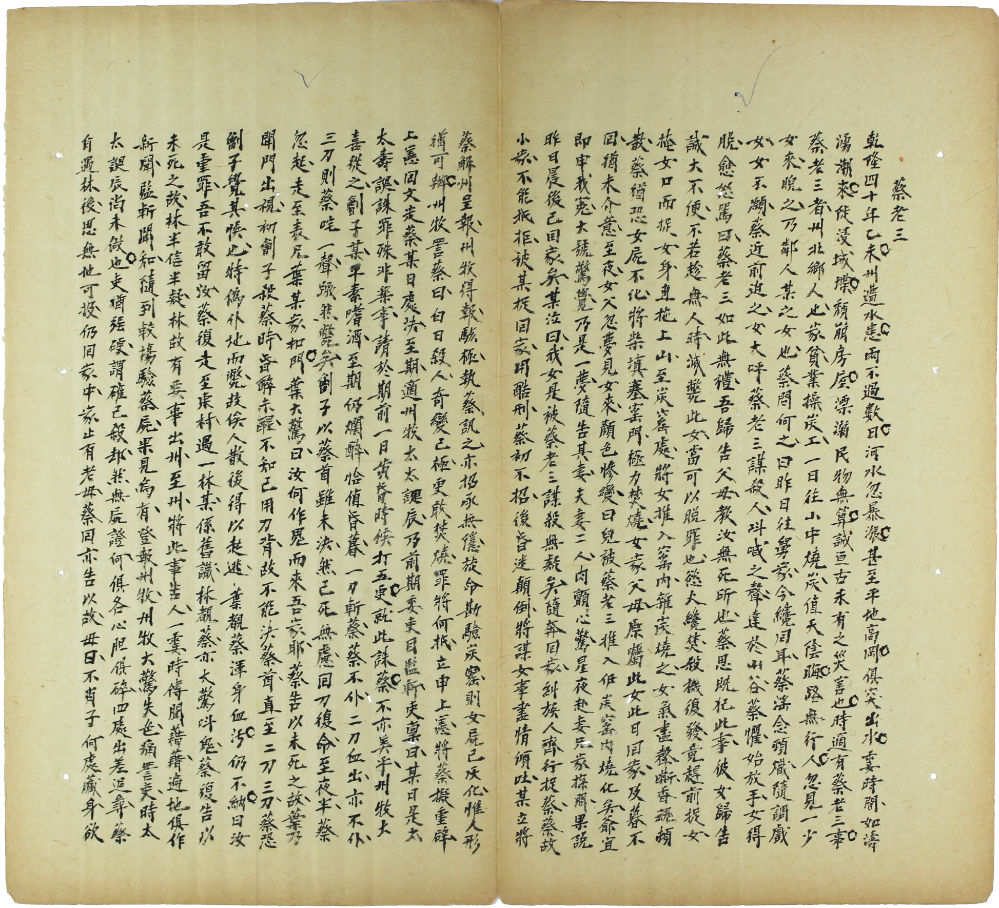 蔡老三
乾隆四十年乙未州遭水患雨不過數日河水忽暴漲甚至平地高岡俱突出水霎時閒如濤
湧潮來從浸城堞頹崩房屋漂溺民物無算誠亘古未有之災害也時適有蔡老三事
蔡老三者州北鄉人也家貧業操炭工一日往山中燒炭值天陰晦路無行人忽見一少
女來睨之乃鄰人某之女也蔡問何之曰昨日往舅家今纔回耳蔡滛念頓熾隨調戲
女女不願蔡近前迫之女大呼蔡老三謀殺人叫喊之聲達於山谷蔡懼始放手女得
脫愈怒罵曰蔡老三如此無禮吾歸告父母教汝無死所也蔡思既犯此事彼女歸告
誠大不便不若趁無人時滅斃此女當可以脫罪也慾火纔焚殺機復發竟趕前捉女
掩女口而捉女身直拖上山至炭窰處將女推入窰內雜炭燒之女氣盡聲嘶香魂頓
散蔡猶恐女屍不化將柴填塞窑門極力焚燒女家父母原囑此女此日回家及暮不
回猶未介意至夜女父忽夢見女來顏色慘變曰兒被蔡老三推入伊炭窰內燒化矣爺宜
即申我冤大號驚覺乃是一夢隨告其妻夫妻二人肉顫心驚星夜赴妻兄家探問果說
昨日晨後已回家矣某泣曰我女是被蔡老三謀殺無疑矣隨奔回家糾族人齊行捉蔡蔡故
小柴不能抵拒被某捉回家用酷刑蔡初不招後昏迷顛倒將謀女事盡情傾吐某立將
蔡解州呈報州牧得報駭極執蔡訊之亦招承無隱放命斯驗炭窰則女屍已灰化惟人形
猶可辦州牧詈蔡曰白日殺人奇變已極更敢焚燒罪將何抵立申上憲將蔡擬重辟
上憲回文定蔡某日處決至期適州牧太太誕辰乃前期委吏目監斬吏稟曰某日是太
太壽誕誅罪殊非樂事請於期前一日黃昏時候打五更就此誅蔡不亦美乎州牧大
喜從之劊子某平素嗜酒至期仍爛醉恰值昏暮一刀斬蔡蔡不仆二刀血出亦不仆
三刀則蔡吱一聲蹶然斃矣劊子以蔡首雖未決然已死無慮回刀復命至夜半蔡
忽起走至表兄葉某家扣門葉大驚曰汝何作鬼而來吾家耶蔡告以未死之故葉乃
開門出視初劊子殺蔡時昏醉未醒不知己用刀背故不能決蔡首直至二刀三刀蔡恐
劊子覺其悞也特僞仆地而斃技俟人散後得以赴逃葉觀蔡渾身血污仍不納曰汝
是重罪吾不敢留汝蔡復走至東村遇一林某係舊識林覩蔡亦大驚叫鬼蔡復告以
未死之故林半信半疑林故有要事出州至州將此事告人一霎時傳聞藉藉遍地俱作
新聞監斬聞知隨到較塲驗蔡屍果見烏有登報州牧州牧大驚失色痛詈吏時太
太誕辰尚未做也吏嘴強硬謂確已殺却然無屍證何俱各心胆俱碎四處出差追尋蔡
自遇林後思無地可投仍回家中家止有老母蔡回亦告以故母曰不肖子何處藏身欲